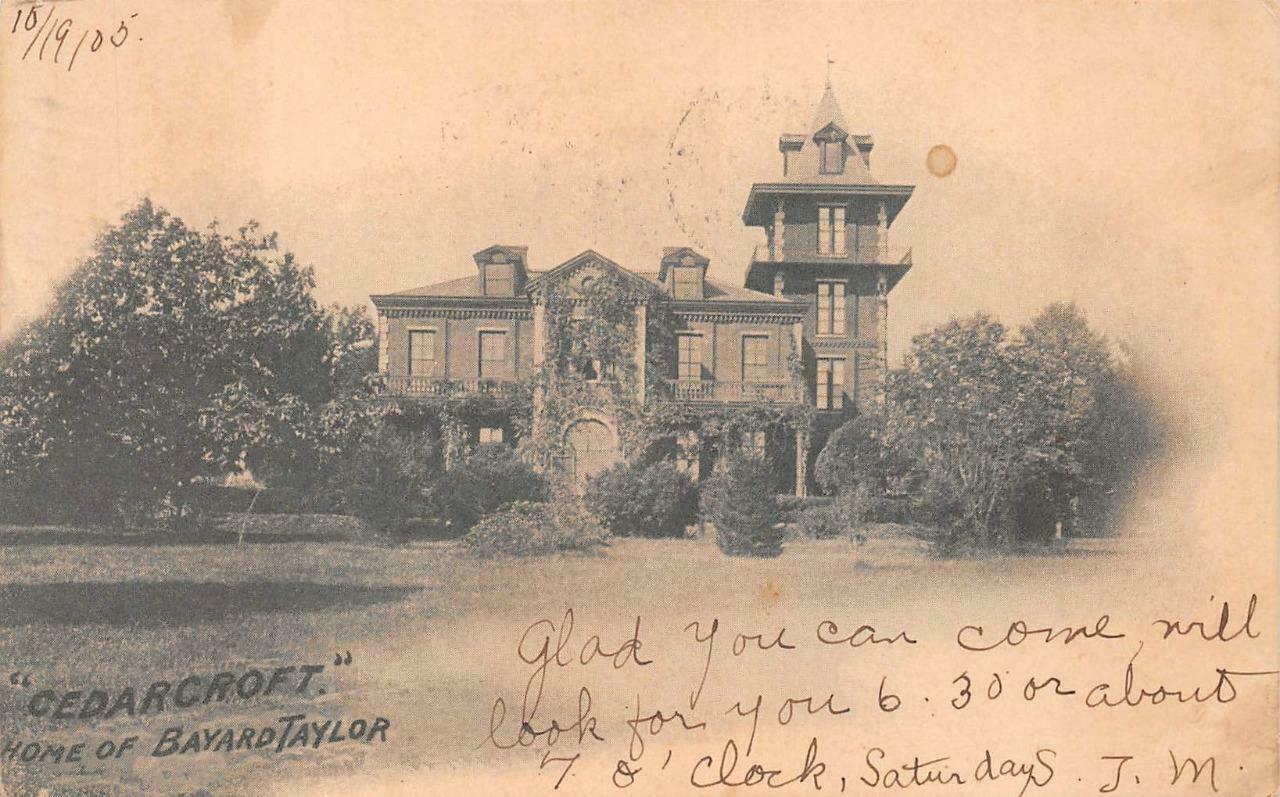 10/19/05.
Glad you can come, will
look for you 6.30 or about
7 o'clock, Saturdays. J. M.
"CEDARCROFT."
HOME OF BAYARD TAYLOR